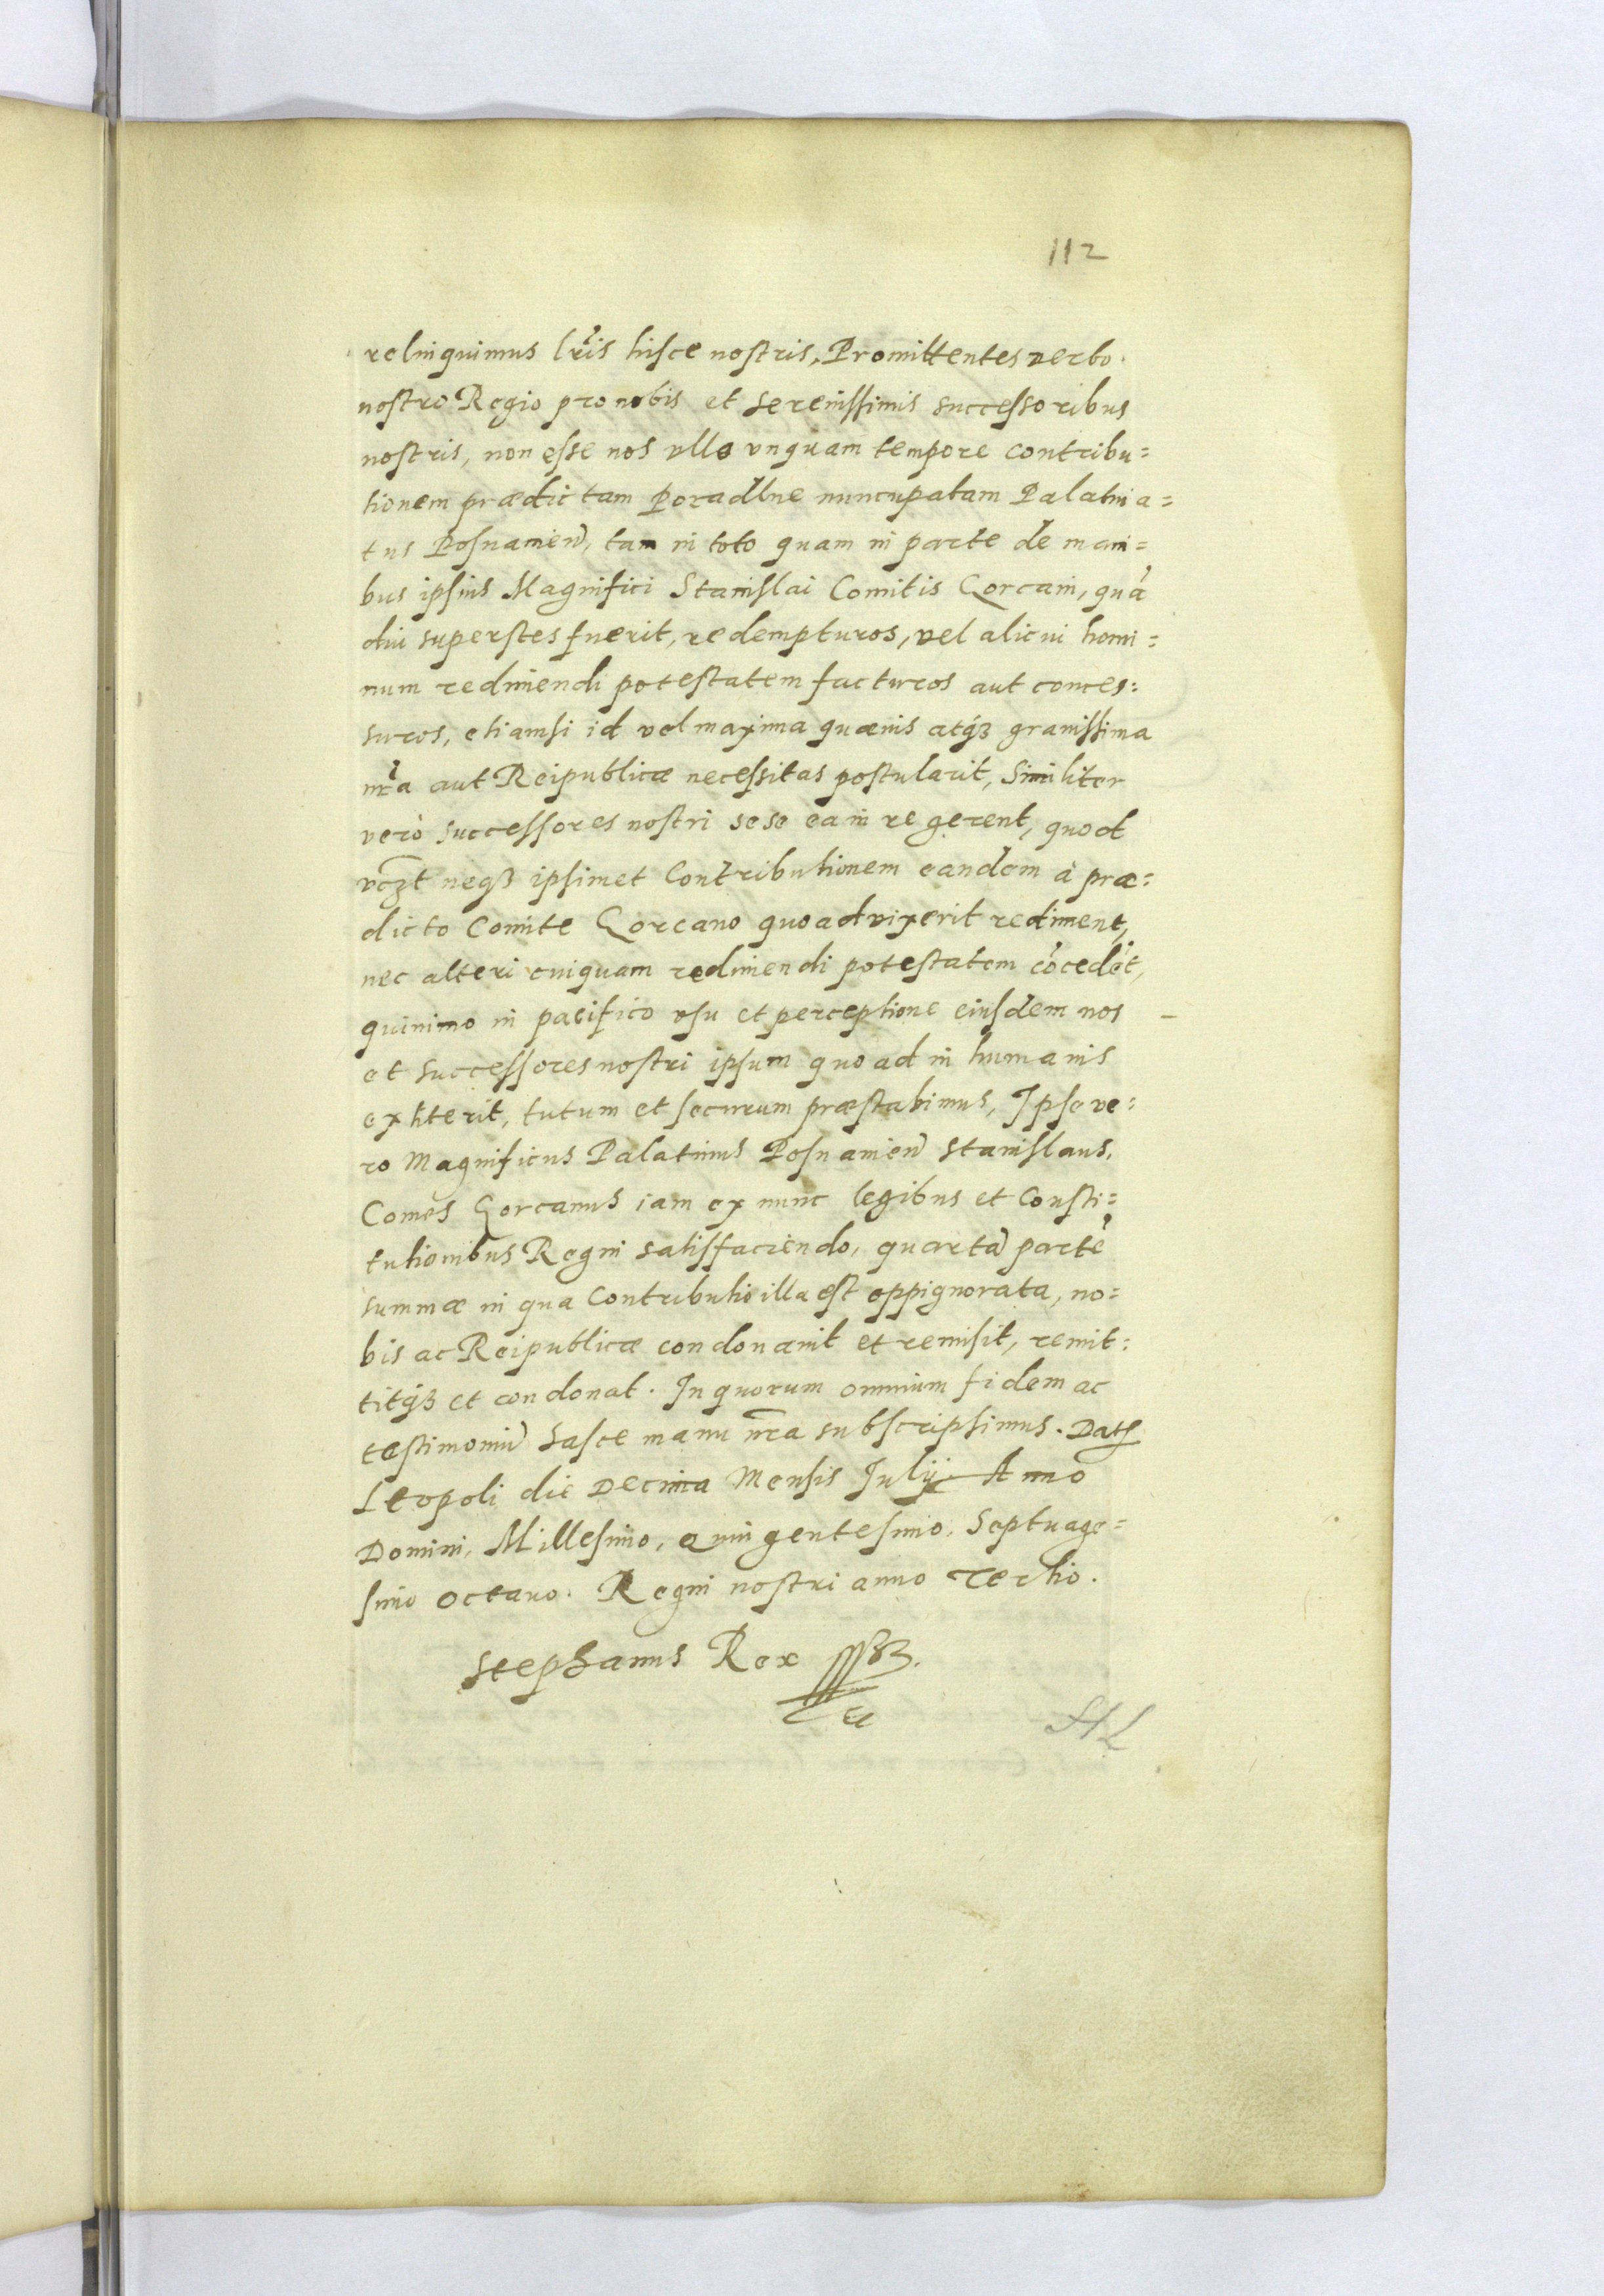 112
relinquimus lr̃is hisce nostris, Promittentes verbo
nostro Regio pro nobis et serenissimis successoribus
nostris, non esse nos vllo vnquam tempore contribu=
tionem prædictam Poradlne nuncupatam Palatina=
tus Posnanien̄, tam in toto quam in parte de mani=
bus ipsius Magnifici Stanislai Comitis Gorcani, quā
diu superstes fuerit, redempturos, vel alicui homi=
num redimendi potestatem facturos aut conces=
suros, etiamsi id vel maxima quævis atqȝ grauissima
nr̃a aut Reipublicæ necessitas postularit, Similiter
verò successores nostri sese ea in re gerent, quod
vczt neqȝ ipsimet Contributionem eandem à præ=
dicto Comite Gorcano quoad vixerit rediment,
nec alteri cuiquam redimendi potestatem cōcedēt,
quinimo in pacifico vsu et perceptione eiusdem nos
et successores nostri ipsum quoad in humanis
extiterit, tutum et securum præstabimus, Ipse ve=
ro Magnificus Palatinus Posnanien̄ Stanislaus,
Comes Gorcanus iam ex nunc legibus et Consti=
tutionibus Regni satisfaciendo, quartā partē
summæ in qua Contributio illa est oppignorata, no=
bis ac Reipublicæ condonauit et remisit, remit=
titqȝ et condonat. In quorum omnium fidem ac
testimoniū hasce manu nr̃a subscripsimus. Datꝭ
Leopoli die Decima Mensis Iulij Anno
Domini, Millesimo, Quingentesimo, Septuage=
simo octauo. Regni nostri anno Tertio.
Stephanus Rex